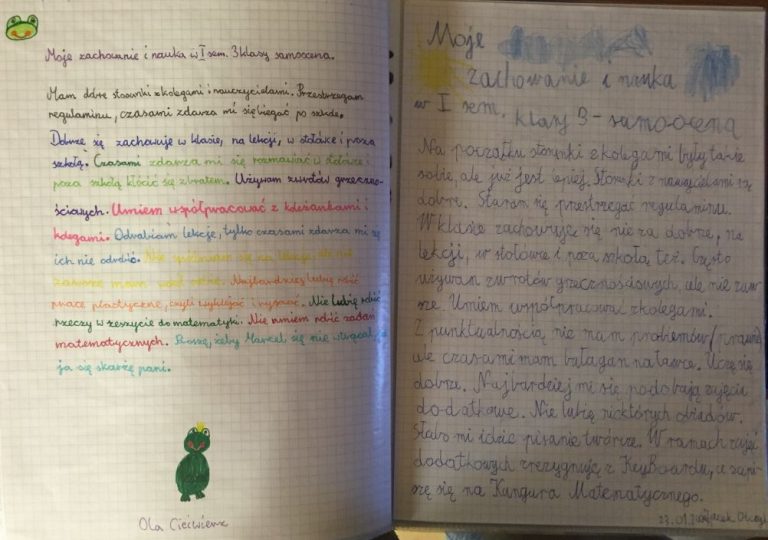 Moje zachowanie i nauka w I sem. 3 klasy samoocena.
Mam dobre stosunki z kolegami i nauczycielami. Przestrzegam
regulaminu, czasami zdarza mi się biegać po szkole.
Dobrze się zachowuje w klasie, na lekcji, w stołówce i poza
szkołą. Czasami zdarza mi się rozmawiać w stołówce i
poza szkołą kłócić się z bratem. Używam zwrotów grzeczno-
ściowych. Umiem współpracować z koleżankami i
kolegami. Odrabiam lekcje, tylko czasami zdarza mi się
ich nie odrobić. Nie spóźniam się na lekcje, ale nie
zawsze mam
Najbardziej lubię robić
prace plastyczne, czyli wyklejać i rysować. Nie lubię robić
rzeczy w zeszycie do matematyki. Nie umiem robić zadań
matematycznych. Proszę, żeby Marcel się nie wtrącał, jak
ja się skarżę pani.
Ola
Moje
zachowanie i nauka
w I sem. klasy 3 - samoocena
Na początku stosunki z kolegami były takie
sobie, ale już jest lepiej. Stosunki z nauczycielami są
dobre. Staram się przestrzegać regulaminu.
W klasie zachowuję się nie za dobrze, na
lekcji, w stołówce i poza szkołą też. Często
używam zwrotów grzecznościowych, ale nie zaw-
sze. Umiem współpracować z kolegami.
Z punktualnością nie mam problemów
ale czasami mam bałagan na ławce. Uczę się
dobrze. Najbardziej mi się podobają zajęcia
dodatkowe. Nie lubię niektórych obiadów.
Słabo mi idzie pisanie twórcze. W ramach zajęć
dodatkowych zrezygnuję z Keyboardu, a zapi-
szę się na Kangura Matematycznego.
23.01